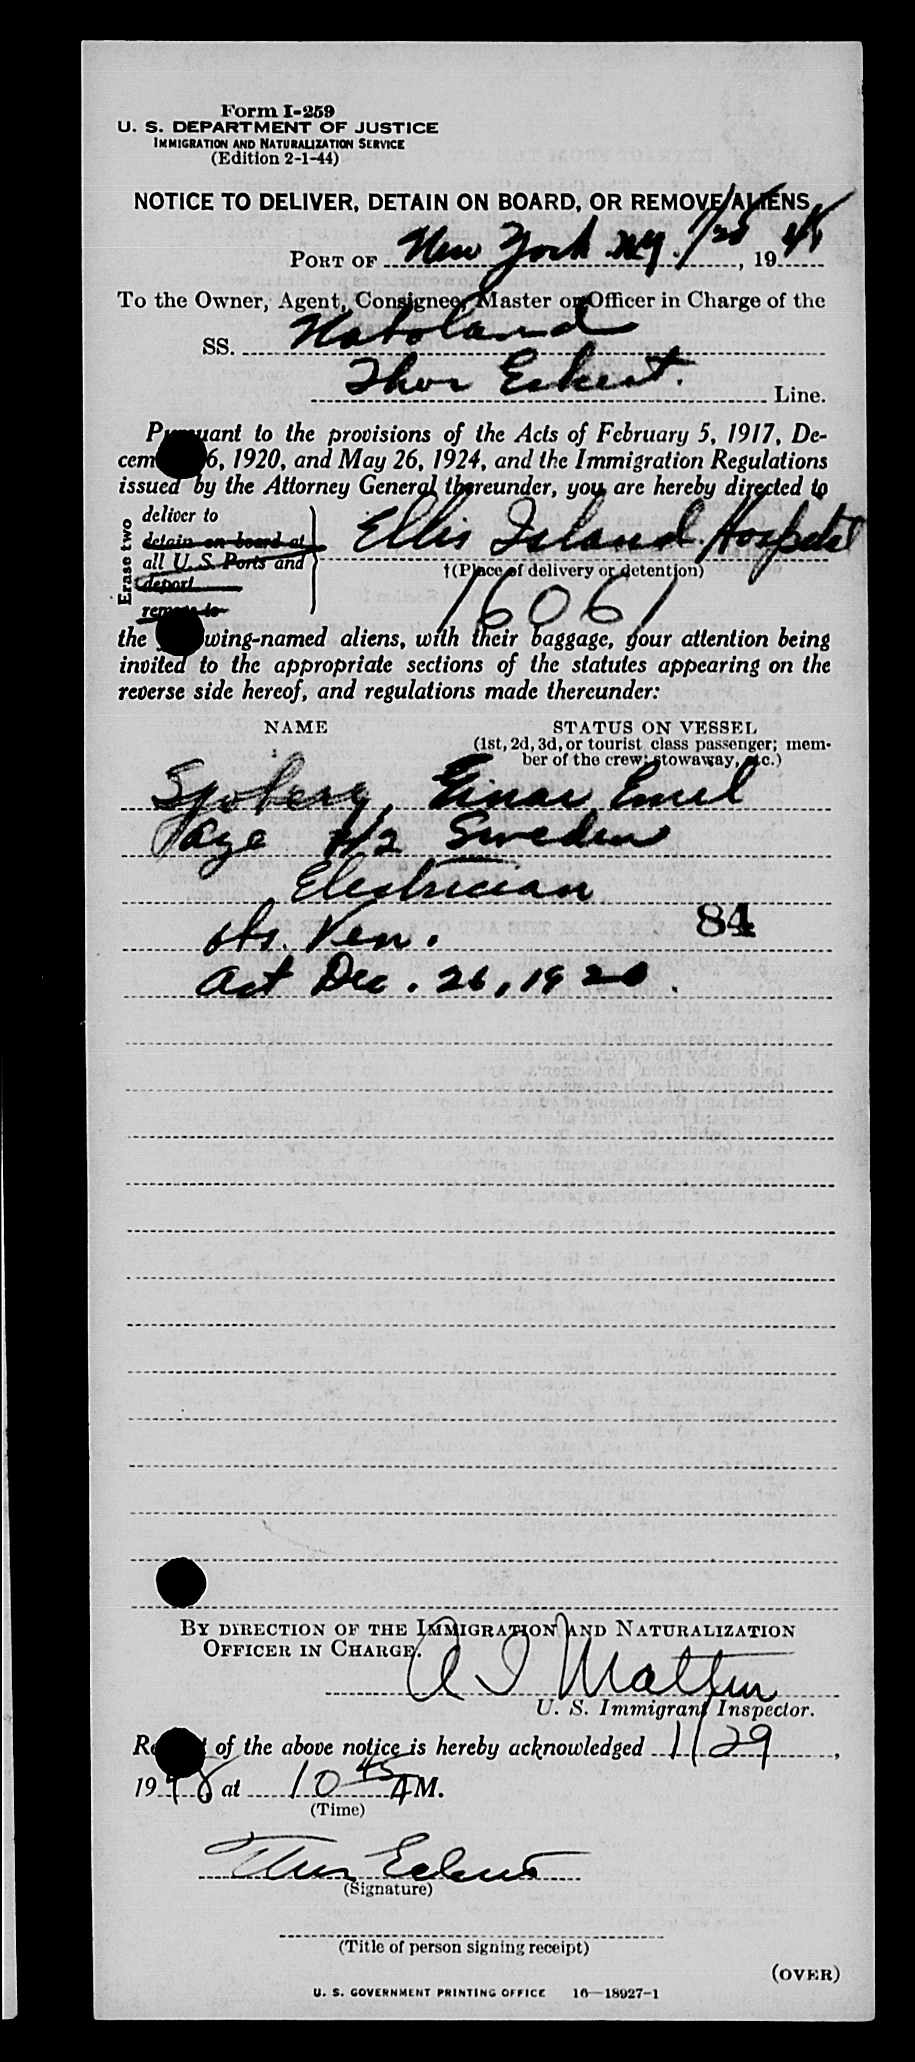 Form I-259
U. S. DEPARTMENT OF JUSTICE
IMMIGRATION AND NATURALIZATION SERVICE
(Edition 2-1-44)
NOTICE TO DELIVER, DETAIN ON BOARD, OR REMOVE ALIENS
PORT OF New York N.Y. 1/28, 1948
To the Owner, Agent, Consignee, Master or Officer in Charge of the
SS.
Thor Eckert. Line.
Pursuant to the provisions of the Acts of February 5, 1917, De-
cem 6, 1920, and May 26, 1924, and the Immigration Regulations
issued by the Attorney General thereunder, you are hereby directed to
Erase two
deliver to
detain on board at
all U. S. Ports and
deport
remove to
Ellis Island Hospital
†(Place of delivery or detention)
16061
the wing-named aliens, with their baggage, your attention being
invited to the appropriate sections of the statutes appearing on the
reverse side hereof, and regulations made thereunder:
NAME STATUS ON VESSEL
(1st, 2d, 3d, or tourist class passenger; mem-
ber of the crew; stowaway, etc.)
Sjoberg, Einar Emil
Age 42 Sweden
Electrician
Ven. 84
Act Dec. 26, 1920.
BY DIRECTION OF THE IMMIGRATION AND NATURALIZATION
OFFICER IN CHARGE.
U. S. Immigrant Inspector.
Re t of the above notice is hereby acknowledged 1/29,
1948 at 10 45 AM.
(Time)
Thor Eckert
(Signature)
(Title of person signing receipt)
(OVER)
U. S. GOVERNMENT PRINTING OFFICE 16—18927-1